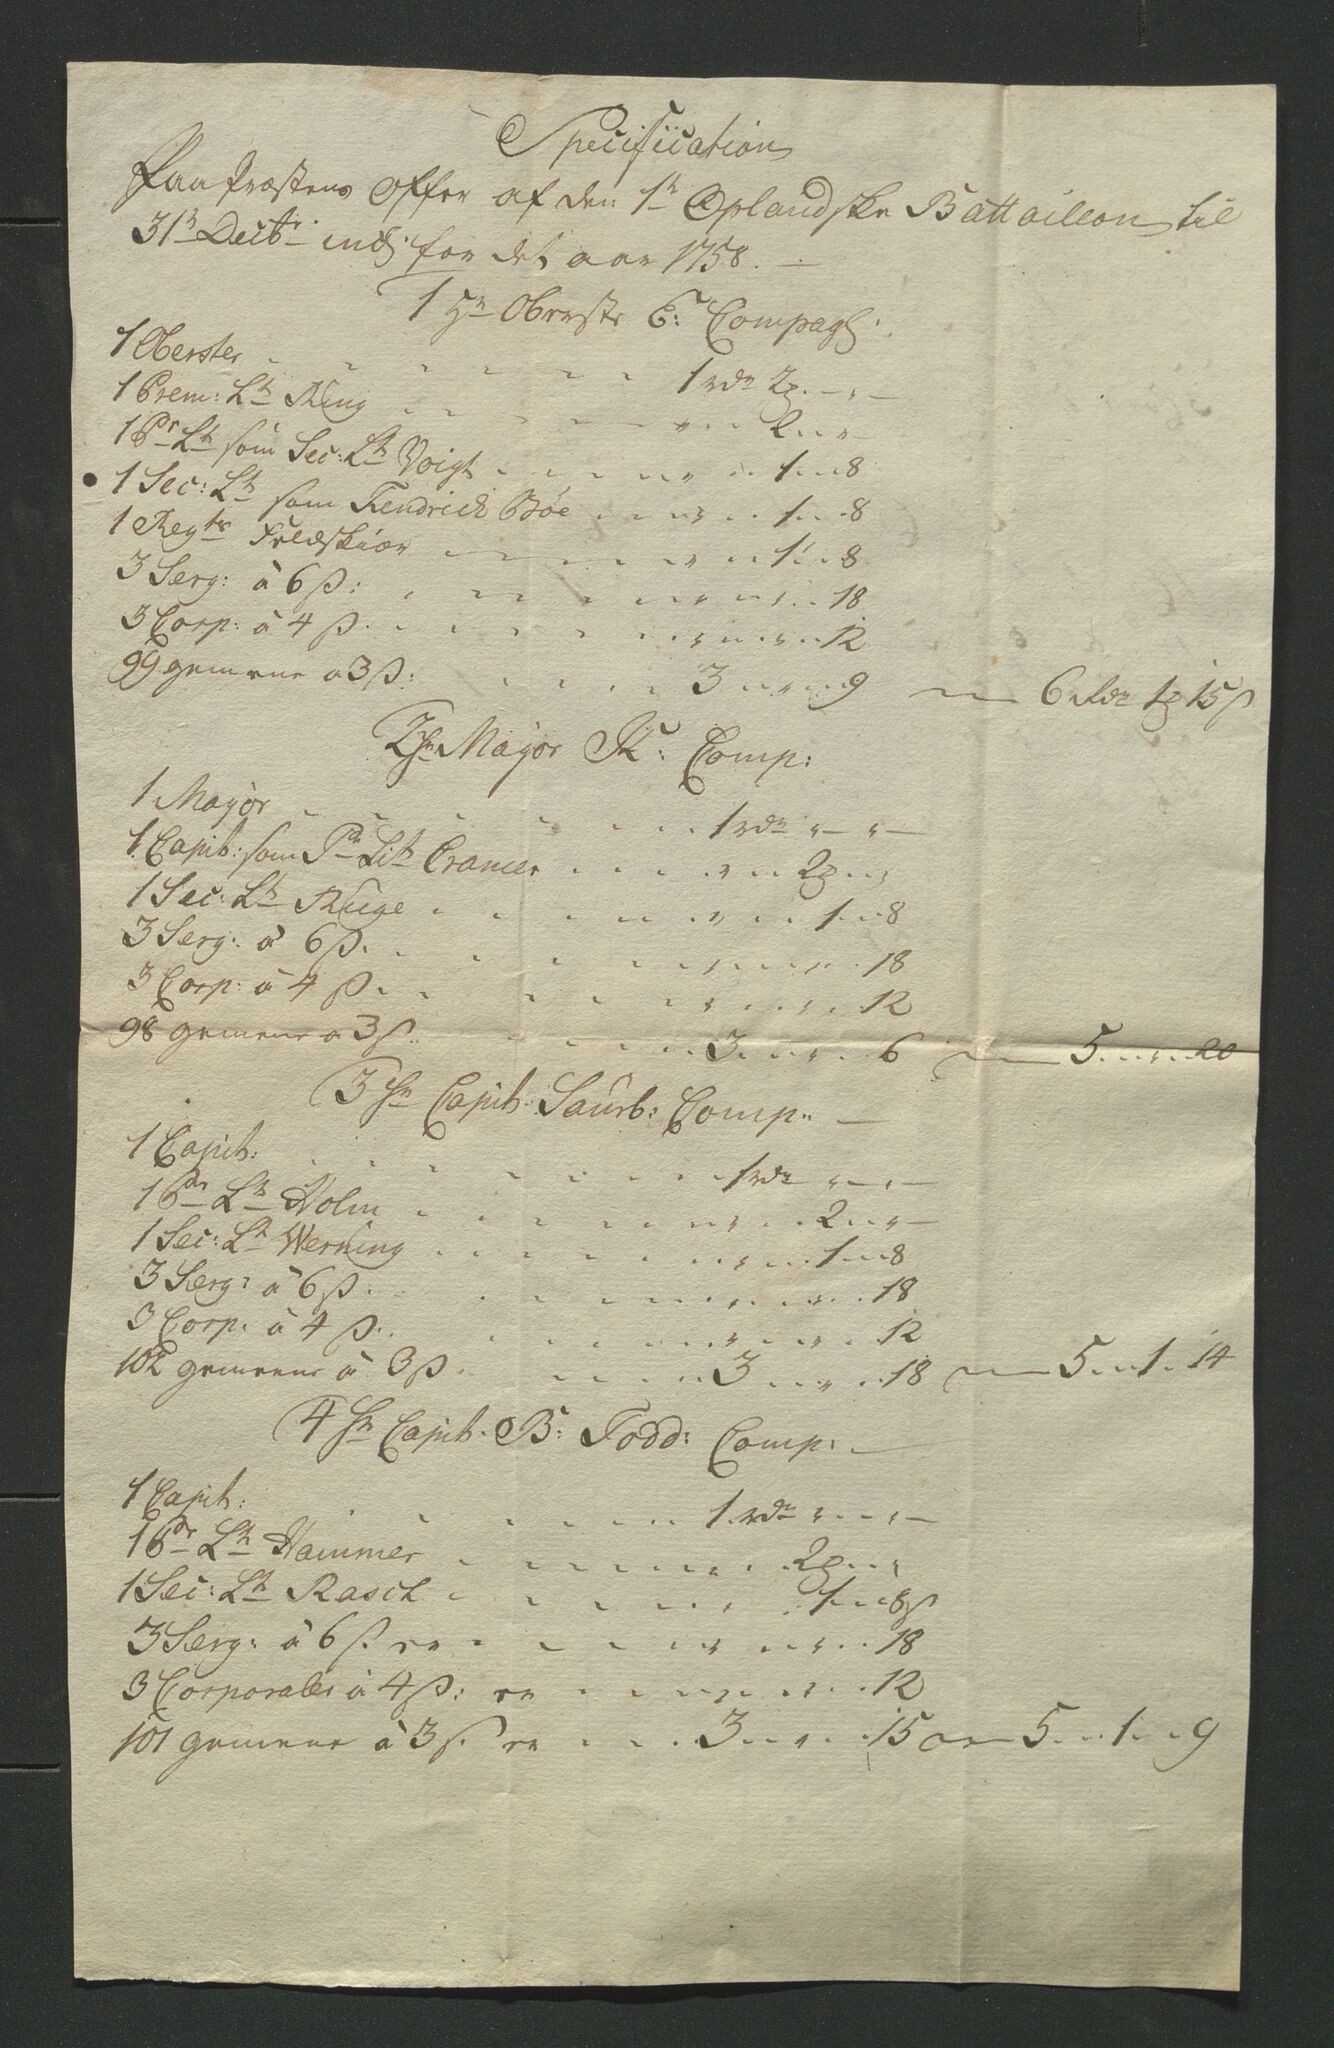 Specification
Paa Præstens Offer af den 1te Oplandske Battailleon til
31te Decbr: incl: for det aar 1758. —
1 Hr Oberste C: Compag:
1 Oberster 1 rdr 2ꝥ. - - -
1 Prem: Lt Ring 2 " -
1 Pr Lt som Sec: Lt Voigt 1 " 8
1 Sec: Lt som Fendrich Bøe 1 " 8
1 Regts Feldskiær 1 " 8
3 Serg: à 6 ß: 18
3 Corp: à 4 ß. 12
99 gemene a 3 ß: 3 " " 9 — 6 Rdr 1ꝥ 15 ß
2 Hr Major R: Comp:
1 Major 1 rdr " - " -
1 Capit: som Pr Lit Cramer 2ꝥ " "
1 Sec: Lt Ruge 1 " 8
3 Serg: à 6 ß. 18
3 Corp: à 4 ß. 12
98 gemene a 3 ß. 3 " " 6 — 5 " " 20
3 Hr Capit. Saurb: Comp: —
1 Capit: 1 rdr " - " -
1 Pr Lt Holm 2 " -
1 Sec: Lt Werning 1 " 8
3 Serg: à 6 ß. 18
3 Corp: à 4 ß. 12
102 gemeene à 3 ß. 3 " " 18 — 5 " 1 " 14
4 Hr Capit. B: Todd: Comp: —
1 Capit: 1 rdr " - " -
1 Pr Lt Hammer 2ꝥ " "
1 Sec: Lt Rasch 1 " 8 ß
3 Serg: à 6 ß. er 18
3 Corporaler à 4 ß: er 12
101 gemene à 3 ß. er 3 " " 15 — 5 " 1 " 9